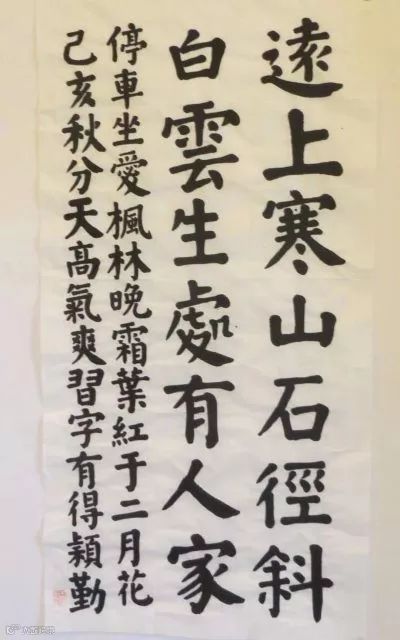 遠上寒山石徑斜
白雲生處有人家
停車坐愛楓林晚霜葉紅于二月花
己亥秋分天高氣爽習字有得穎勤